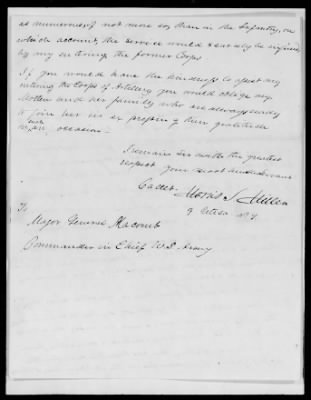 as numerous if not more so, than in the Infantry, on
which account, the service would scarcely be injured
by my entering the former Corps
If you would have the kindness to effect my
entering the Corps of Artillery you would oblige my
Mother and her family who are always ready
to join her in an expression of their gratitude
on such an occasion.
I remain Sir with the greatest
respect your most
Cadet Morris S Miller
of Utica N.Y.
To
Major General Macomb
Commander in Chief U.S. Army